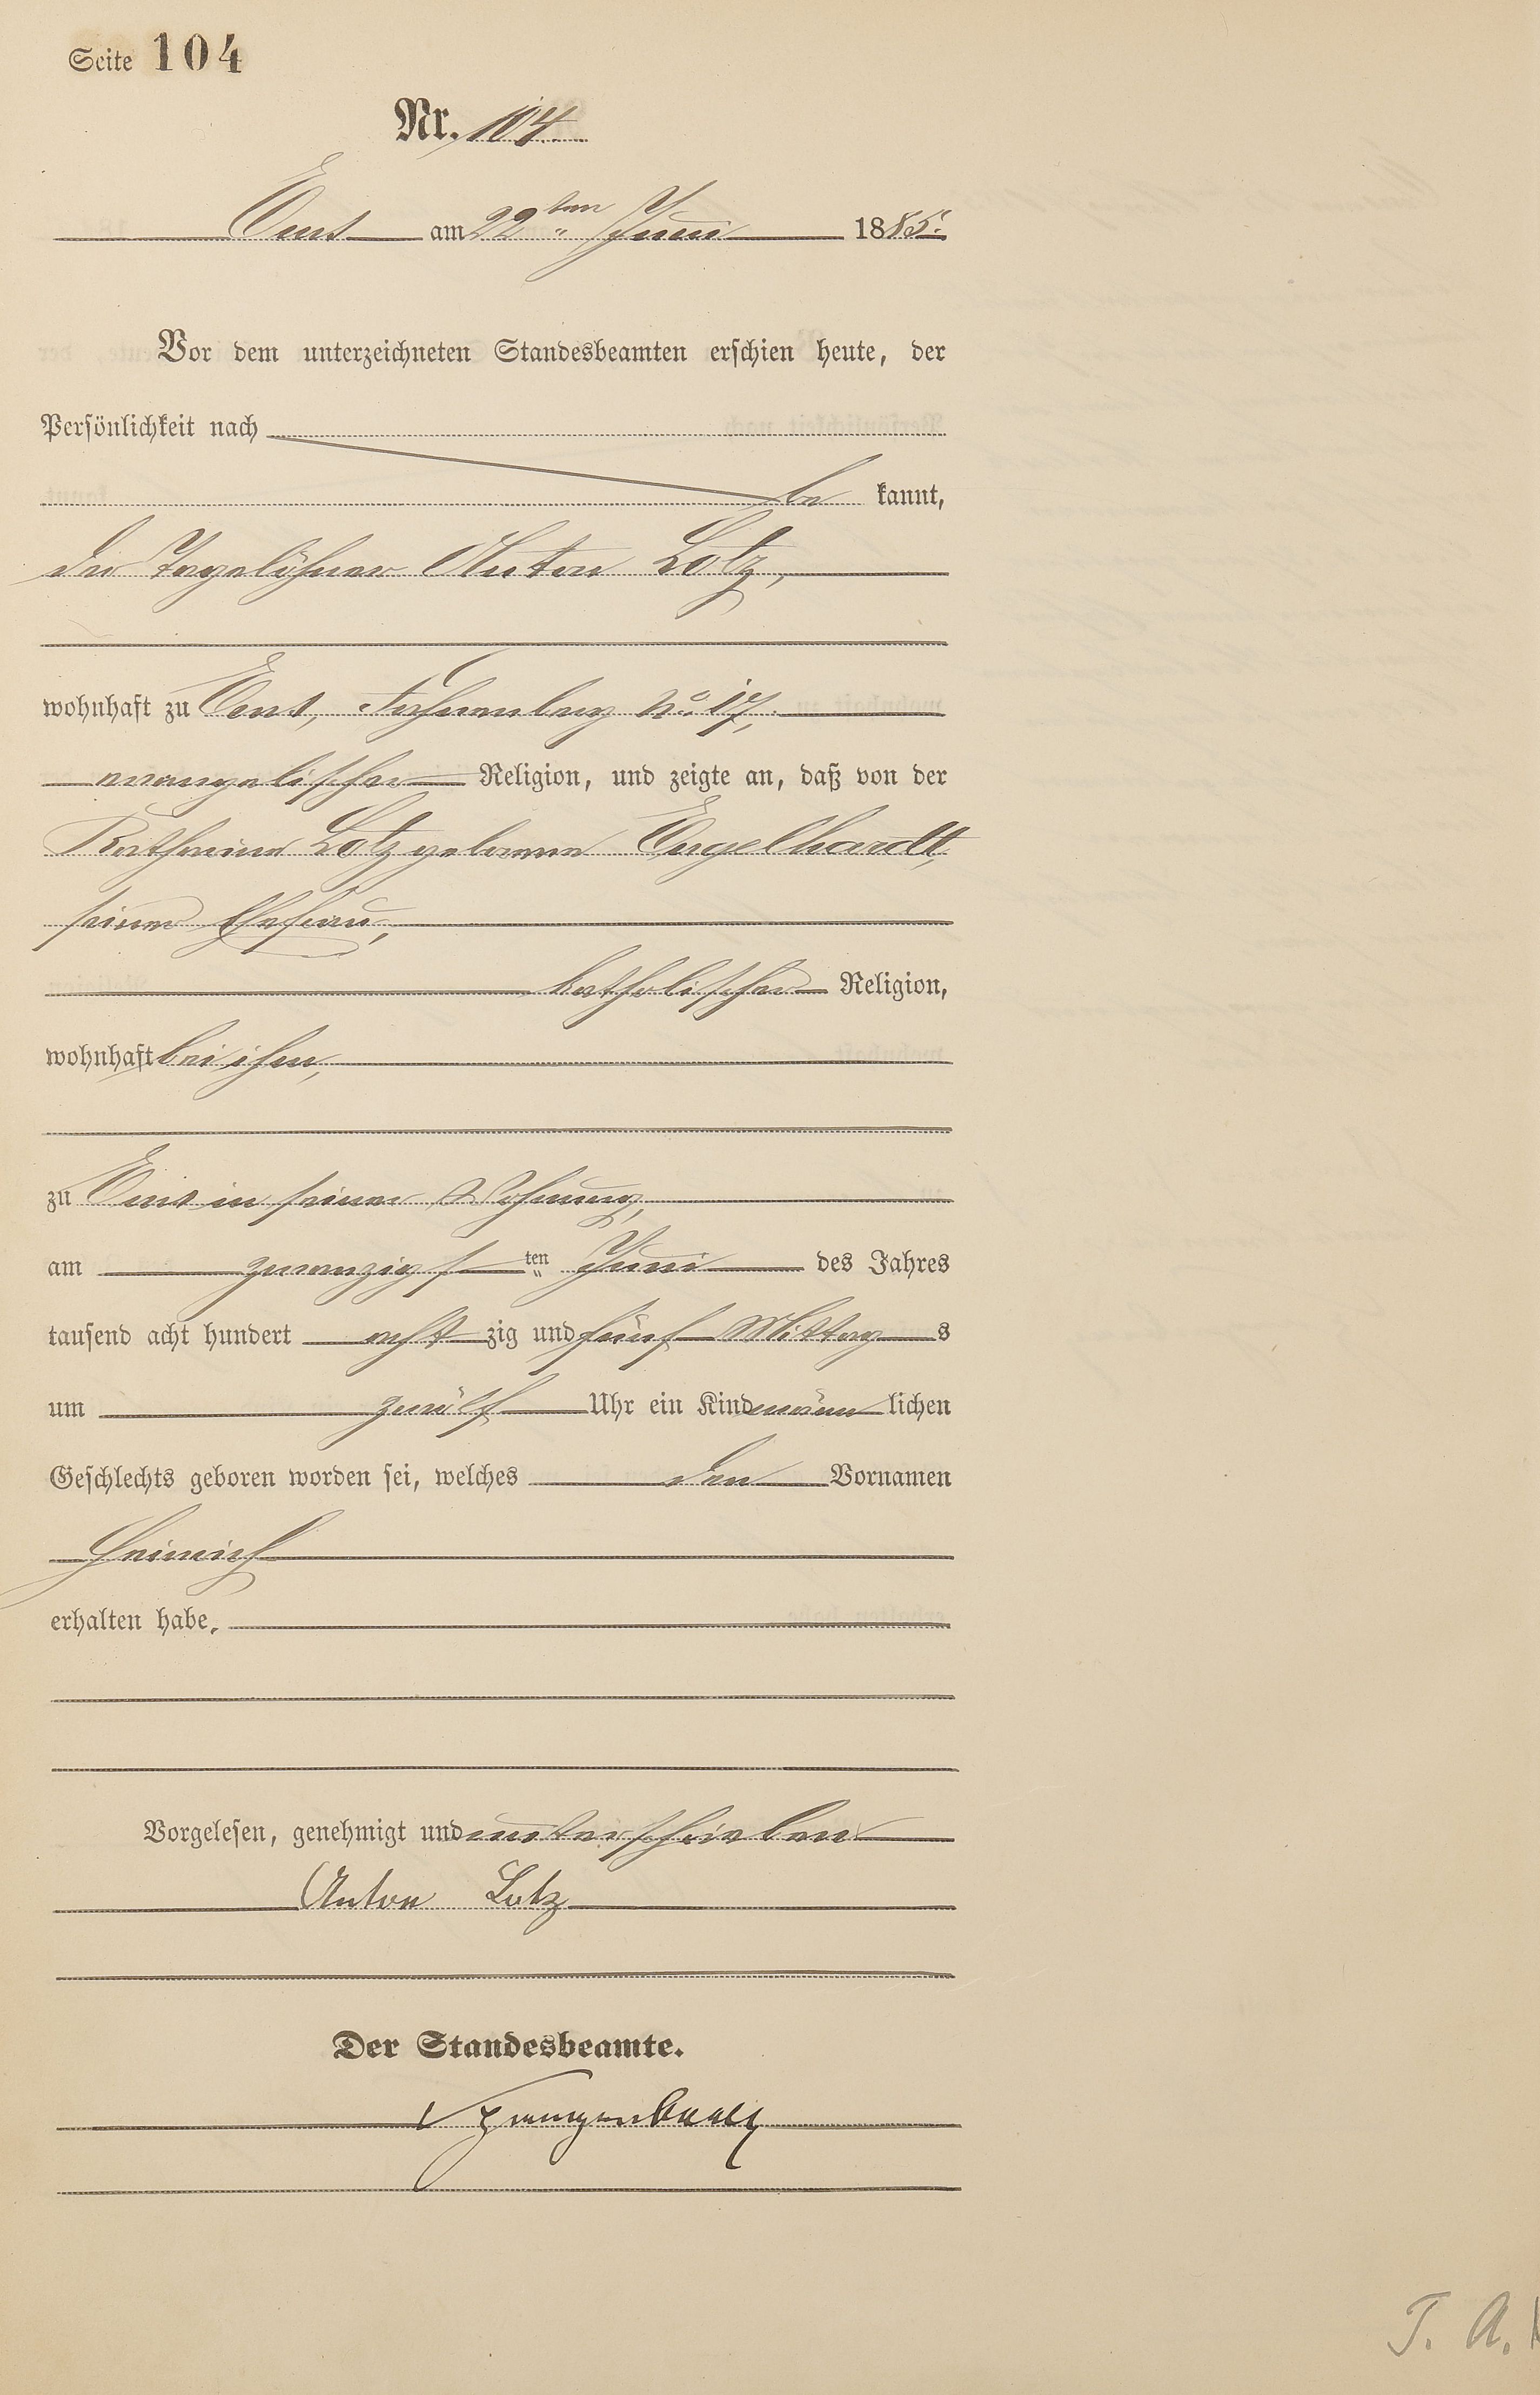 Seite 104
Nr. 104.
Ems am 22ten Juni 1885.
Vor dem unterzeichneten Standesbeamten erschien heute, der
Persönlichkeit nach
be kannt,
der Tagelöhner Anton Lotz,
wohnhaft zu Ems, No 17,
evangelischer Religion, und zeigte an, daß von der
Katharina Lotz geborene Engelhardt,
seiner Ehefrau,
katholischer Religion,
wohnhaft bei ihm,
zu Ems in seiner Wohnung,
am zwanzigsten Juni des Jahres
tausend acht hundert acht zig und fünf Mittags
um zwölf Uhr ein Kind männ lichen
Geschlechts geboren worden sei, welches den Vornamen
Heinrich
erhalten habe.
Vorgelesen, genehmigt und unterschrieben
Anton Lotz
Der Standesbeamte.
T. A.